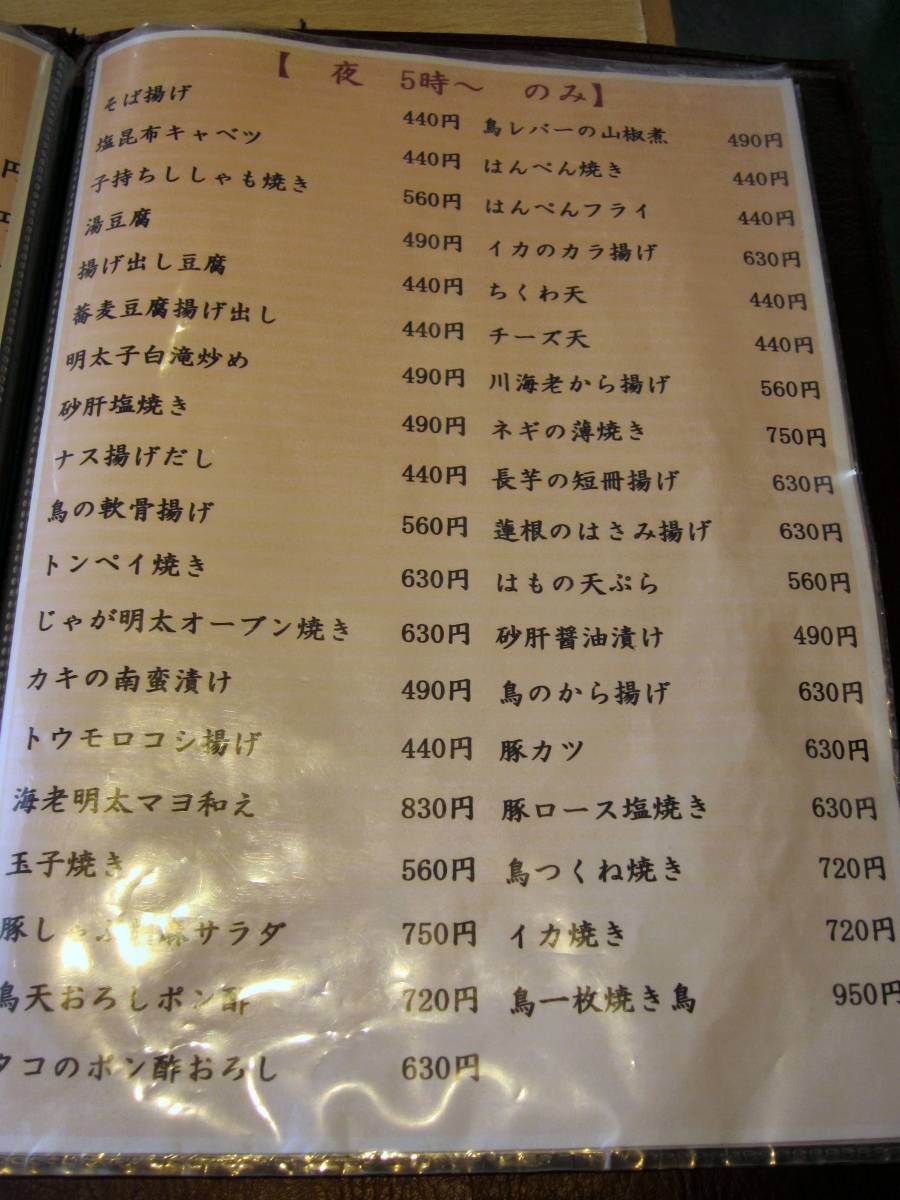 【 夜 5時～ のみ】
そば揚げ 440円
塩昆布キャベツ 440円
子持ちししゃも焼き 560円
湯豆腐 490円
揚げ出し豆腐 440円
蕎麦豆腐揚げ出し 440円
明太子白滝炒め 490円
砂肝塩焼き 490円
ナス揚げだし 440円
鳥の軟骨揚げ 560円
トンペイ焼き 630円
じゃが明太オーブン焼き 630円
カキの南蛮漬け 490円
トウモロコシ揚げ 440円
海老明太マヨ和え 830円
玉子焼き 560円
豚しゃぶ 麻サラダ 750円
鳥天おろしポン酢 720円
タコのポン酢おろし 630円
鳥レバーの山椒煮 490円
はんぺん焼き 440円
はんぺんフライ 440円
イカのカラ揚げ 630円
ちくわ天 440円
チーズ天 440円
川海老から揚げ 560円
ネギの薄焼き 750円
長芋の短冊揚げ 630円
蓮根のはさみ揚げ 630円
はもの天ぷら 560円
砂肝醤油漬け 490円
鳥のから揚げ 630円
豚カツ 630円
豚ロース塩焼き 630円
鳥つくね焼き 720円
イカ焼き 720円
鳥一枚焼き鳥 950円